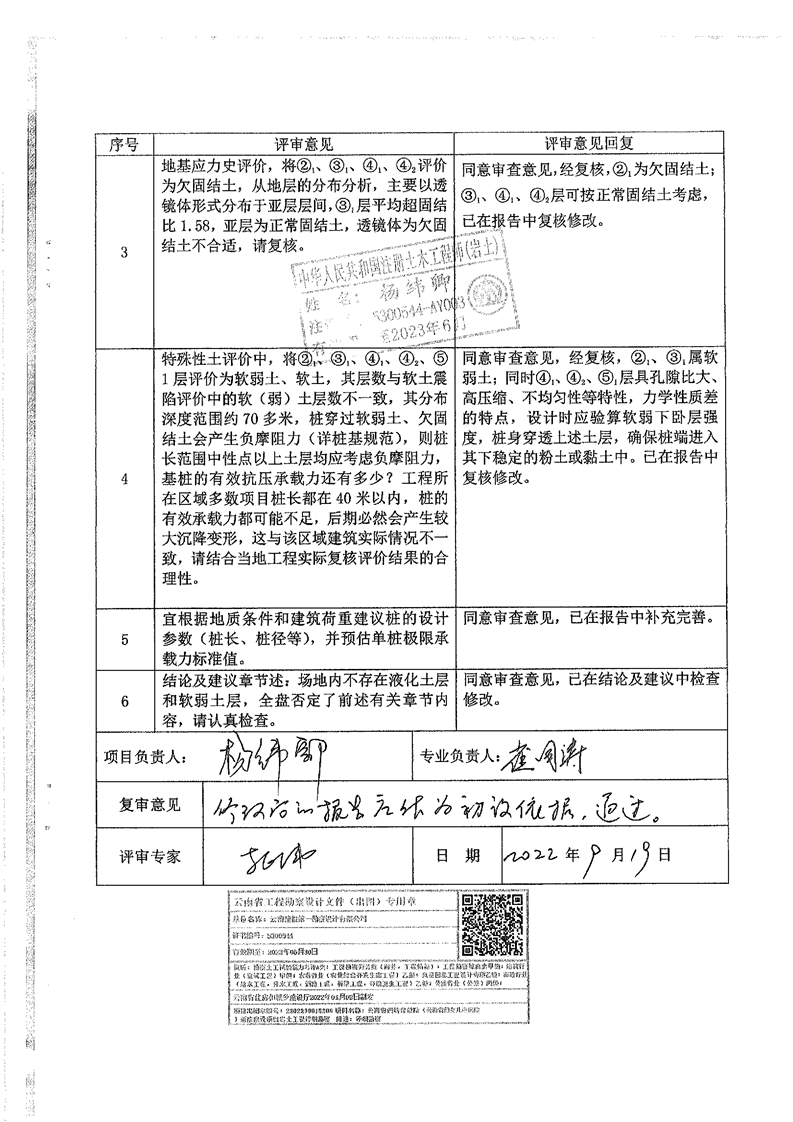 序号 评审意见 评审意见回复
3
地基应力史评价，将②₁、③₁、④₁、④₂评价
为欠固结土，从地层的分布分析，主要以透
镜体形式分布于亚层层间，③₁层平均超固结
比 1.58，亚层为正常固结土，透镜体为欠固
结土不合适，请复核。
同意审查意见，经复核，②₁为欠固结土；
③₁、④₁、④₂层可按正常固结土考虑，
已在报告中复核修改。
中华人民共和国注册土木工程师(岩土)
姓 名：杨纬卿
5300544-AY003
至2023年6月
4
特殊性土评价中，将②₁、③₁、④₁、④₂、⑤
1 层评价为软弱土、软土，其层数与软土震
陷评价中的软（弱）土层数不一致，其分布
深度范围约 70 多米，桩穿过软弱土、欠固
结土会产生负摩阻力（详桩基规范），则桩
长范围中性点以上土层均应考虑负摩阻力，
基桩的有效抗压承载力还有多少？工程所
在区域多数项目桩长都在 40 米以内，桩的
有效承载力都可能不足，后期必然会产生较
大沉降变形，这与该区域建筑实际情况不一
致，请结合当地工程实际复核评价结果的合
理性。
同意审查意见，经复核，②₁、③₁属软
弱土；同时④₁、④₂、⑤₁层具孔隙比大、
高压缩、不均匀性等特性，力学性质差
的特点，设计时应验算软弱下卧层强
度，桩身穿透上述土层，确保桩端进入
其下稳定的粉土或黏土中。已在报告中
复核修改。
5
宜根据地质条件和建筑荷重建议桩的设计
参数（桩长、桩径等），并预估单桩极限承
载力标准值。
同意审查意见，已在报告中补充完善。
6
结论及建议章节述：场地内不存在液化土层
和软弱土层，全盘否定了前述有关章节内
容，请认真检查。
同意审查意见，已在结论及建议中检查
修改。
项目负责人： 杨纬卿 专业负责人：
复审意见 修改后的报告可作为初设依据，通过。
评审专家 日 期 2022 年 9 月 19 日
云南省工程勘察设计文件（出图）专用章
证书编号：5300544